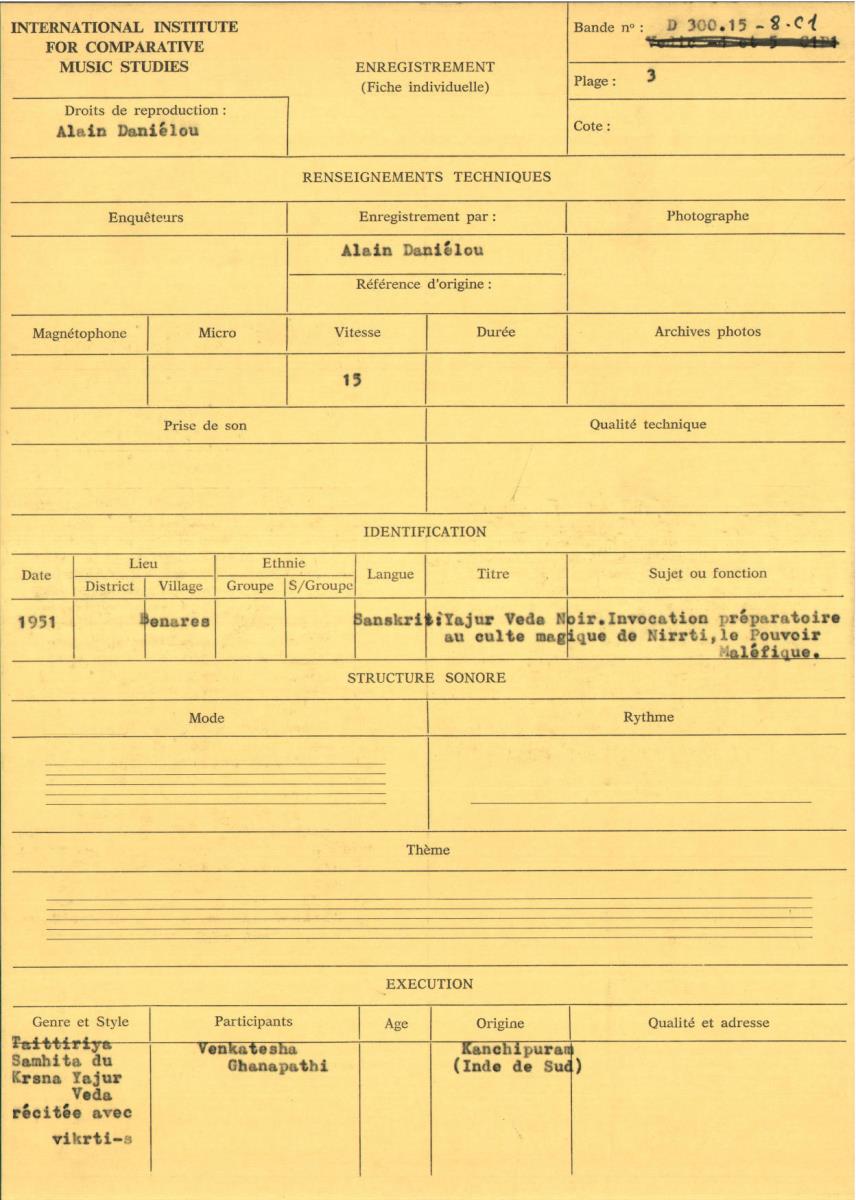 INTERNATIONAL INSTITUTE
FOR COMPARATIVE
MUSIC STUDIES
Droits de reproduction :
Alain Daniélou
ENREGISTREMENT
(Fiche individuelle)
Bande nº : D 300.15 - 8.C1
Plage : 3
Cote :
RENSEIGNEMENTS TECHNIQUES
Enquêteurs
Enregistrement par :
Photographe
Alain Daniélou
Référence d'origine :
Magnétophone
Micro
Vitesse
Durée
Archives photos
15
Prise de son
Qualité technique
IDENTIFICATION
Date
Lieu
Ethnie
Langue
Titre
Sujet ou fonction
District
Village
Groupe
S/Groupe
1951
Benares
Sanskrit:Yajur Veda Noir.Invocation préparatoire
au culte magique de Nirrti,le Pouvoir
Maléfique.
STRUCTURE SONORE
Mode
Rythme
Thème
EXECUTION
Genre et Style
Participants
Age
Origine
Qualité et adresse
Taittiriya
Samhita du
Krsna Yajur
Veda
récitée avec
vikrti-s
Venkatesha
Ghanapathi
Kanchipuram
(Inde de Sud)